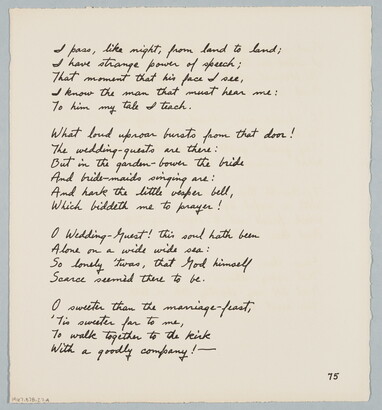 I pass, like night, from land to land;
I have strange power of speech;
That moment that his face I see,
I know the man that must hear me:
To him my tale I teach.

What loud uproar bursts from that door!
The wedding-guests are there:
But in the garden-bower the bride
And bride-maids singing are:
And hark the little vesper bell,
Which biddeth me to prayer!

O Wedding-Guest! this soul hath been
Alone on a wide wide sea:
So lonely 'twas, that God himself
Scarce seemèd there to be.

O sweeter than the marriage-feast,
'Tis sweeter far to me,
To walk together to the kirk
With a goodly company!—

75